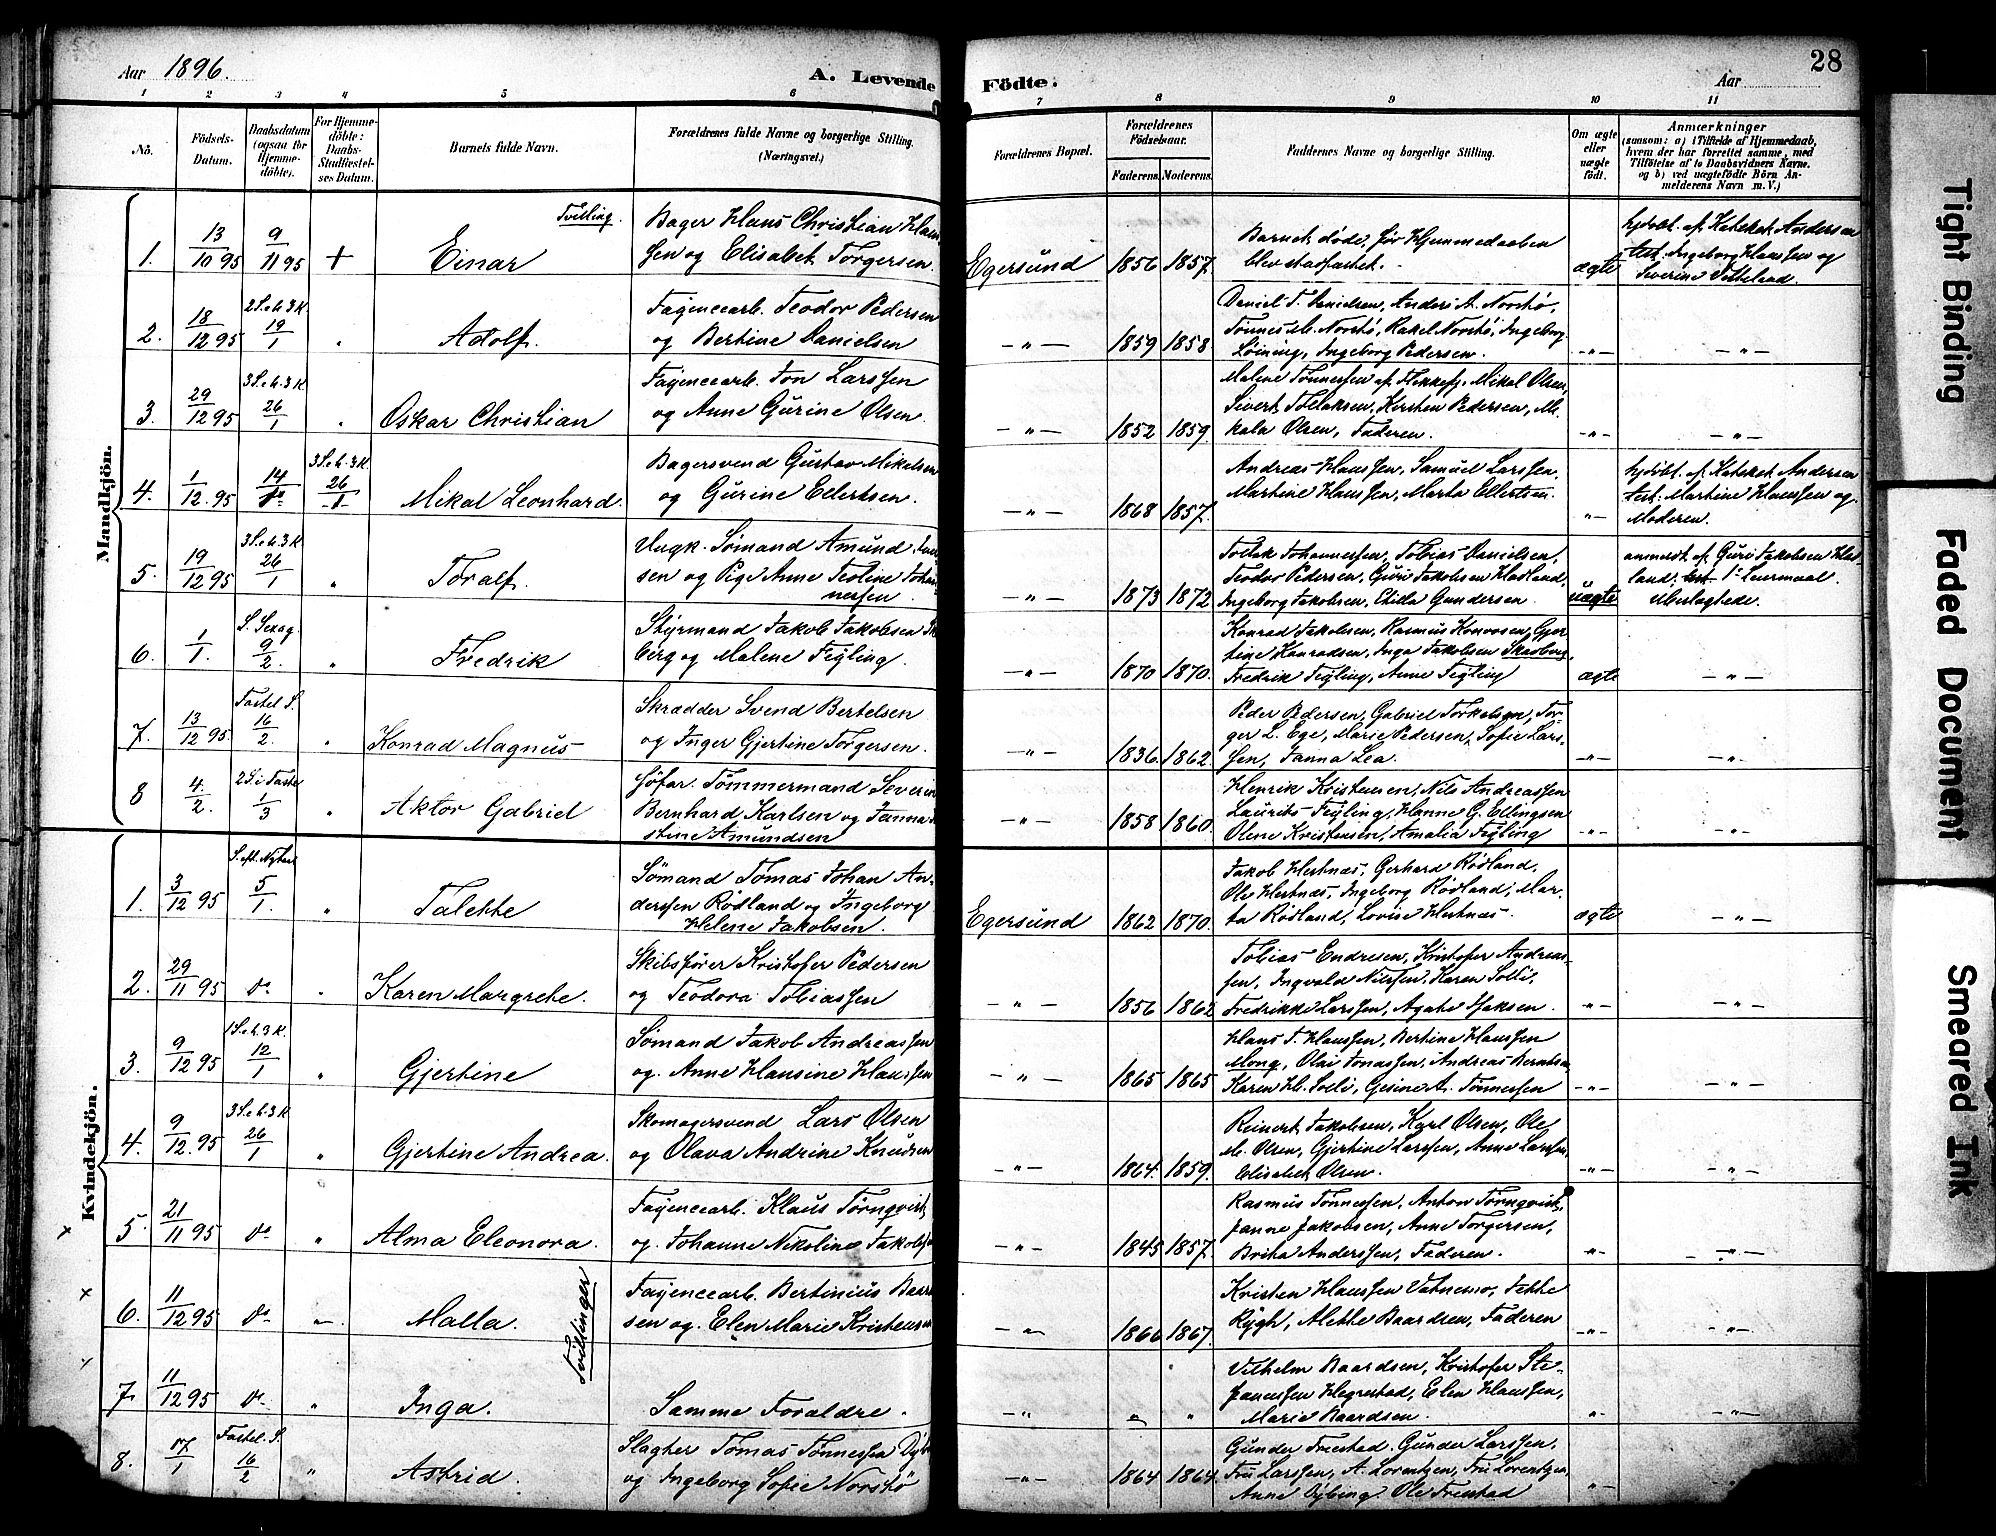 Aar 1896.
A. Levende Födte.
Aar
28
1 2 3 4 5 6 7 8 9 10 11
No. Födsels-Datum. Daabsdatum (ogsaa for Hjemme-döbte). For Hjemme-döbte: Daabs-Stadfæstel-ses Datum. Barnets fulde Navn. Forældrenes fulde Navne og borgerlige Stilling. (Næringsvei.) Forældrenes Bopæl. Forældrenes Födselsaar. Faderens. Moderens. Faddernes Navne og borgerlige Stilling. Om ægte eller uægte födt. Anmærkninger (saasom: a) i Tilfælde af Hjemmedaab, hvem der har forrettet samme, med Tilföielse af to Daabsvidners Navne, og b) ved uægtefödte Börn An-melderens Navn m. V.)
Mandkjön.
1. 13/10 95 9/11 95 + Einar Tvilling. Bager Hans Christian Han-
sen og Elisabet Torgersen. Egersund 1856 1857. Barnet døde, før Hjemmedaaben
blev stadfæstet. ægte hjdøbt. af Kateket Andersen
test. Ingeborg Hanssen og
Severine
2. 18/12 95 2 S. e. h. 3 K. 19/1 " Adolf. Fayencearb. Teodor Pedersen
og Bertine Danielsen -"- 1859 1858 Daniel T. Danielsen, Anders A. Norstø,
Tønnes M. Norstø, Rakel Norstø, Ingeborg
Løining, Ingeborg Pedersen. -"- -"-
3. 29/12 95 3 S. e. h. 3 K. 26/1 " Oskar Christian Fayencearb. Jon Larssen
og Anne Gurine Olsen. -"- 1852 1859 Malene Tønnessen af Flekkefj. Mikal Olsen,
Sivert Tollaksen, Kirsten Pedersen, Mi-
kala Olsen, Faderen. -"- -"-
4. 1/12 95 14/do 3 S. e. h. 3 K. 26/1 Mikal Leonhard. Bagersvend Gustav Mikalsen
og Gurine Ellertsen. -"- 1868 1857. Andreas Hanssen, Samuel Larssen,
Martine Hanssen, Marta Ellertsen. -"- hjdøbt. af Kateket Andersen
test: Martine Hanssen og
Moderen.
5. 19/12 95 3 S. e. h. 3 K 26/1 " Toralf. Ungk. Sømand Amund
sen og Pige Anne Teoline Johan-
nersen. -"- 1873 1872 Tollak Johannessen, Tobias Danielsen,
Teodor Pedersen, Guri Jakobsen Hadland,
Ingeborg Jakobsen, Gundersen uægte anmeldt af Guri Jakobsen Had-
land; 1ste Leiermaal.
Ubeslægtede.
6. 1/1. S. Sexag. 9/2. " Fredrik Styrmand Jakob Jakobsen
berg og Malene Feyling. -"- 1870 1870. Konrad Jakobsen, Rasmus Gjer-
tine Konradsen, Inga Jakobsen Skadberg,
Fredrik Feyling, Anne Feyling ægte -"-
7. 13/12 95 Fastel. S. 16/2. " Konrad Magnus Skrædder Svend Bertelsen
og Inger Gjertine Torgersen. -"- 1836 1862. Peder Pedersen, Gabriel Torkelsen, Tor-
ger L. Ege, Marie Pedersen, Sofie Lars-
sen, Janna Lea. -"- -"-
8 4/2. 2 S. i Faste 1/3 " Aktor Gabriel Søfar. Tømmermand Severin
Bernhard Karlsen og Janna
stine Amundsen -"- 1858 1860. Henrik Kristensen, Nils Andreassen
Laurits Feyling, Hanne G. Ellingsen
Olene Kristensen, Amalia Feyling -"- -"-
Kvindekjön.
1. 3/12 95 S. eft. Nytaar 5/1. " Talette Sømand Tomas Johan An-
derssen Rødland og Ingeborg
Helene Jakobsen. Egersund 1862 1870. Jakob Hestnæs, Gerhard Rødland,
Ole Hestnæs, Ingeborg Rødland, Mar-
ta Rødland, Lovise Hestnæs. ægte -"-
2. 29/11 95 do " Karen Margrethe. Skibsfører Kristofer Pedersen
og Teodora Tobiassen -"- 1856 1862 Tobias Endresen, Kristofer Andreas-
sen, Ingvald Nilssen, Karen Solli,
Fredrikke Larssen, Agate Isaksen. -"- -"-
3. 9/12 95 1 S. e. h. 3 K. 12/1 " Gjertine Sømand Jakob Andreassen
og Anne Hansine Hanssen -"- 1865 1865 Hans T. Hanssen, Bertine Hanssen
Mong, Olai Jonassen, Andreas Berntsen
Karen H. Solli, Gesine A. Tønnessen -"- -"-
4. 9/12. 95 3 S. e. h. 3 K. 26/1 " Gjertine Andrea. Skomagersvend Lars Olsen
og Olava Andrine Knudsen -"- 1864. 1859. Reinert Jakobsen, Karl Olsen, Ole
M. Olsen, Gjertine Larssen, Anne Larssen,
Elisabet Olsen. -"- -"-
x 5. 21/11 95 do " Alma Eleonora. Fayencearb. Klaus Törnqvist,
og Johanne Nikoline Jakobsen -"- 1845 1857. Rasmus Tønnessen, Anton Törnqvist,
Janne Jakobsen, Anne Torgersen,
Brita Anderssen, Faderen. -"- -"-
x 6. 11/12 95 do " Malla. Tvillinger Fayencearb. Bertinius Baard
sen og Elen Marie Kristensen -"- 1866 1867. Kristen Hanssen Vatnemo, Tekke
Rygh, Alette Baardsen, Faderen -"- -"-
7. 11/12 95 do " Inga. Samme Forældre. -"- " " Vilhelm Baardsen, Kristofer Ste-
fanussen Hegrestad, Elen Hanssen,
Marie Baardsen. -"- -"-
8. 17/1 Fastel. S. 16/2 " Astrid. Slagter Tomas Tønnessen
og Ingeborg Sofie Norstø -"- 1864 1864. Gunder Friestad, Gunder Larssen,
Fru Larssen, A. Lorentzen, Fru Lorentzen,
Anne Dybing, Ole Friestad "
Tight Binding
Faded Document
Smeared Ink